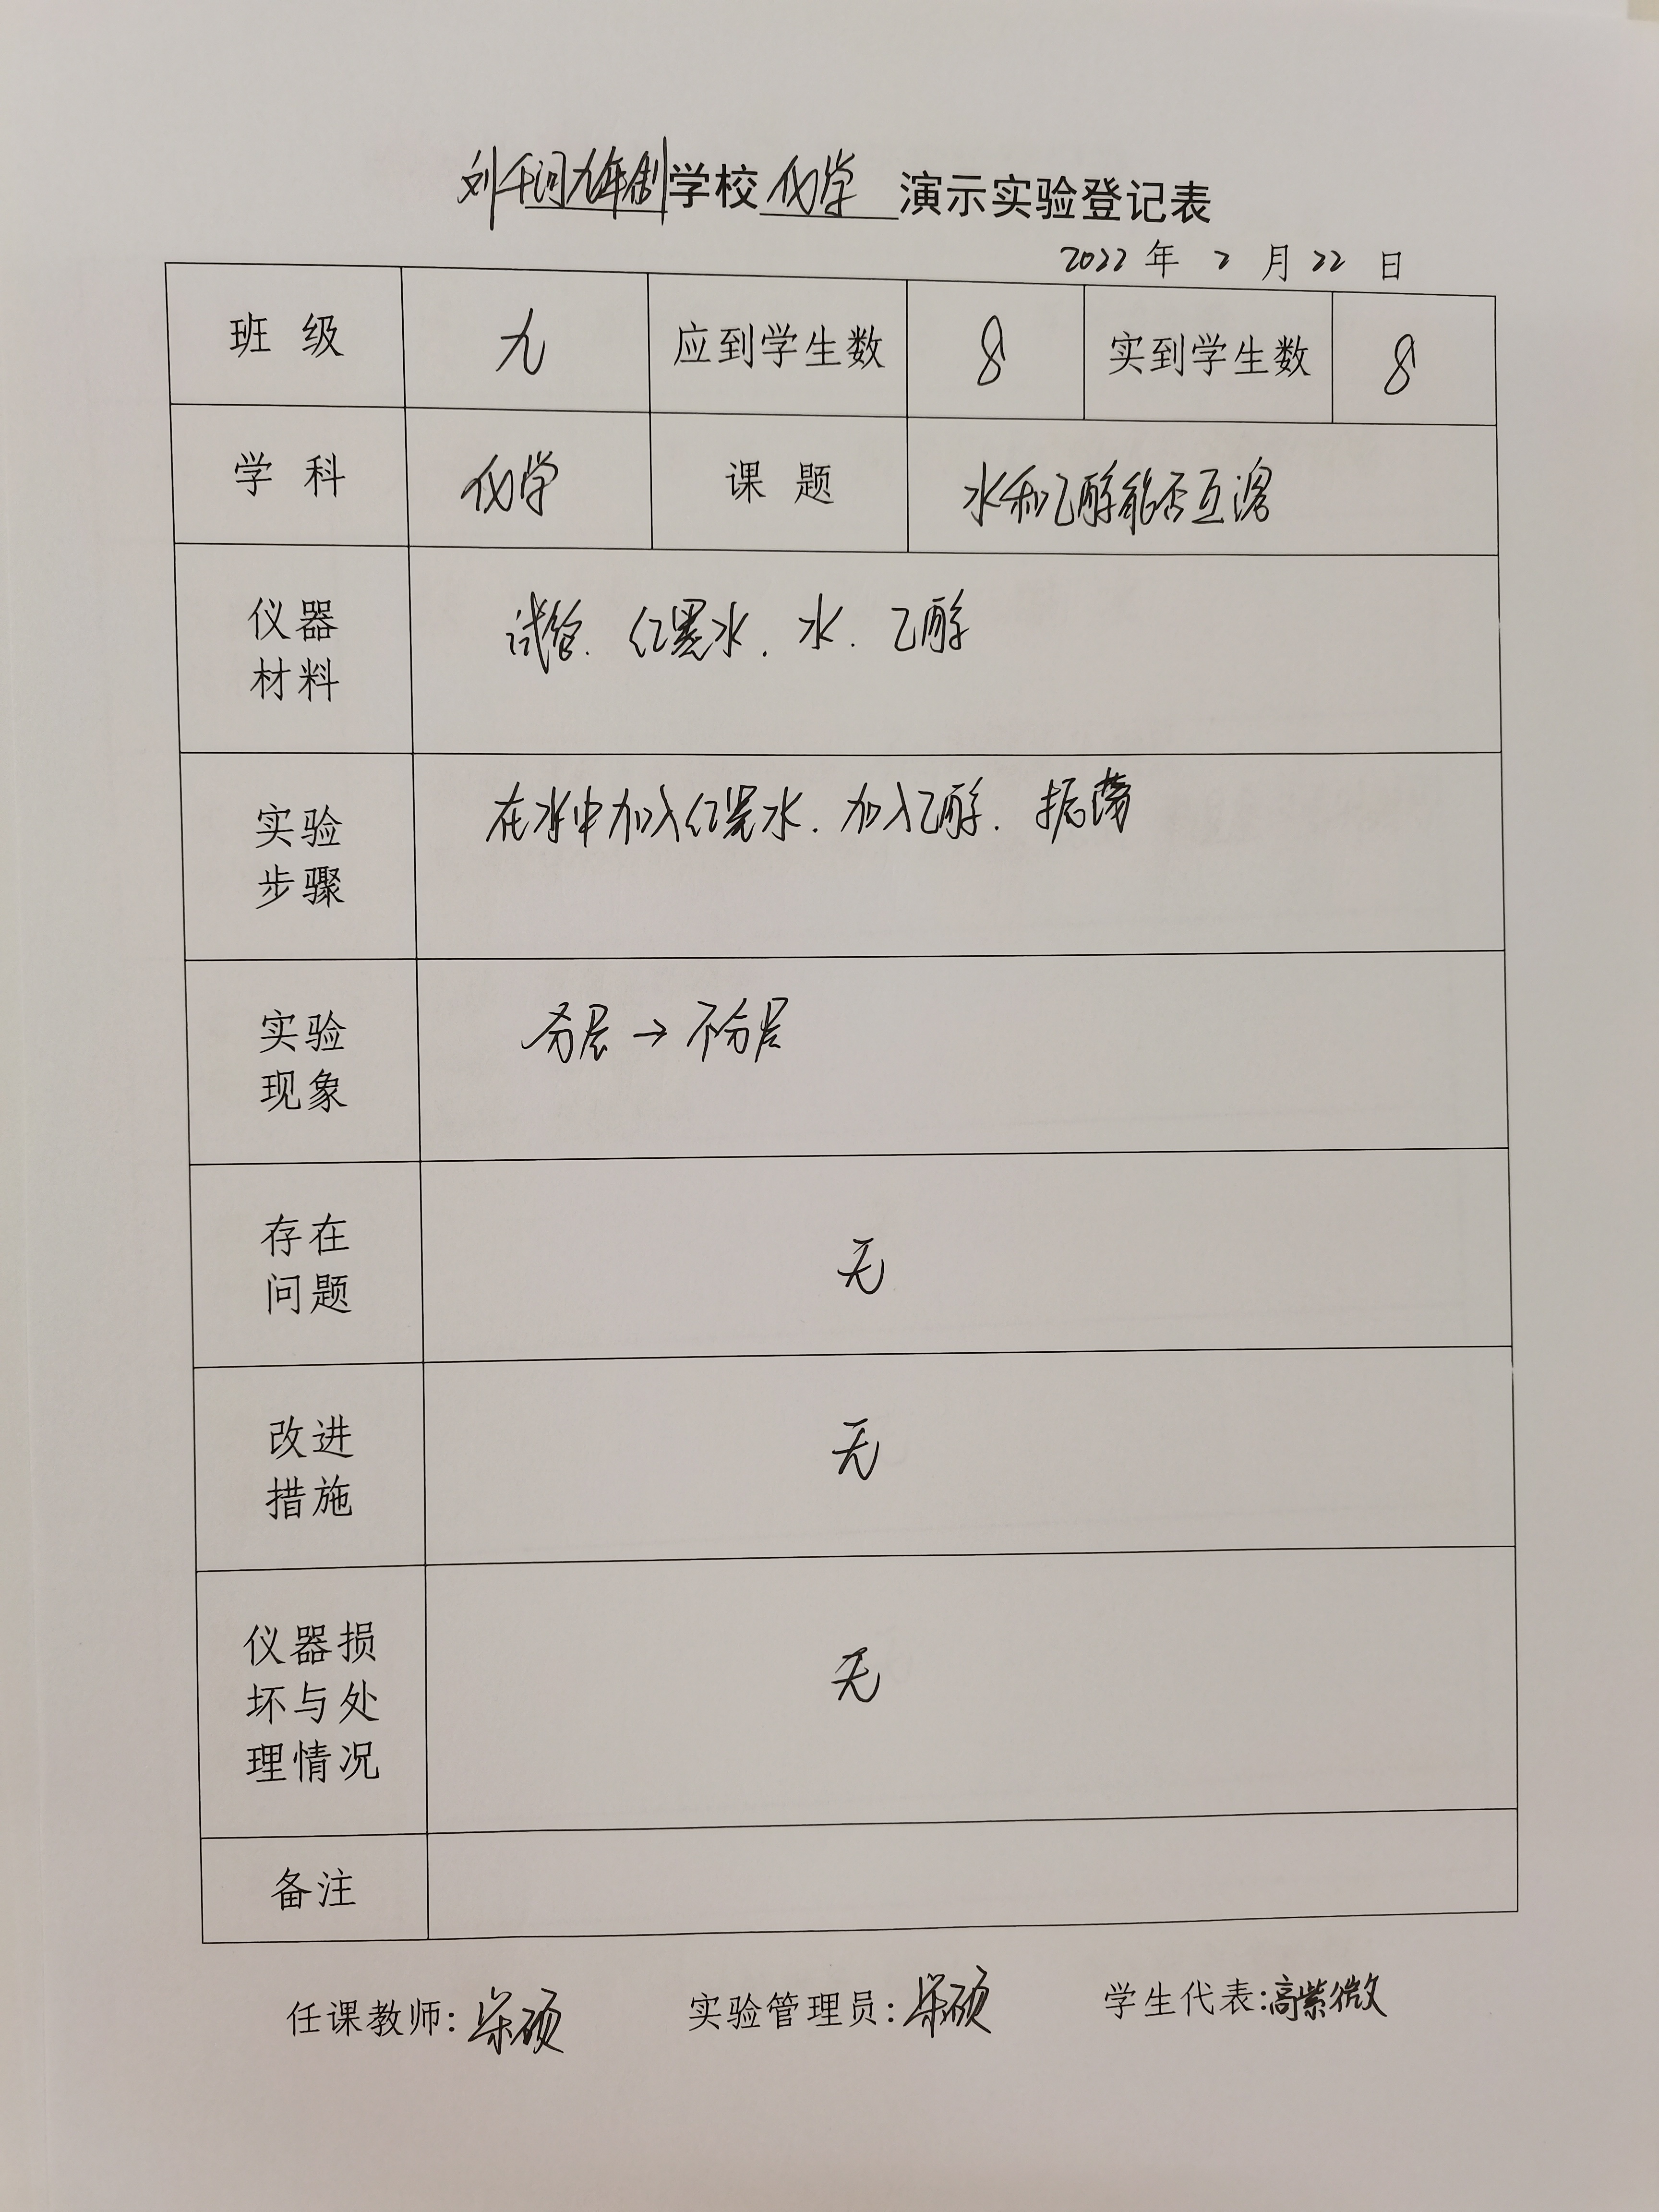 刘千河九年制学校化学演示实验登记表
2022年2月22日
班级 九 应到学生数 8 实到学生数 8
学科 化学 课题 水和乙醇能否互溶
仪器
材料
试管、红墨水、水、乙醇
实验
步骤
在水中加入红墨水、加入乙醇、振荡
实验
现象
分层→不分层
存在
问题
无
改进
措施
无
仪器损
坏与处
理情况
无
备注
任课教师: 实验管理员: 学生代表:高紫微